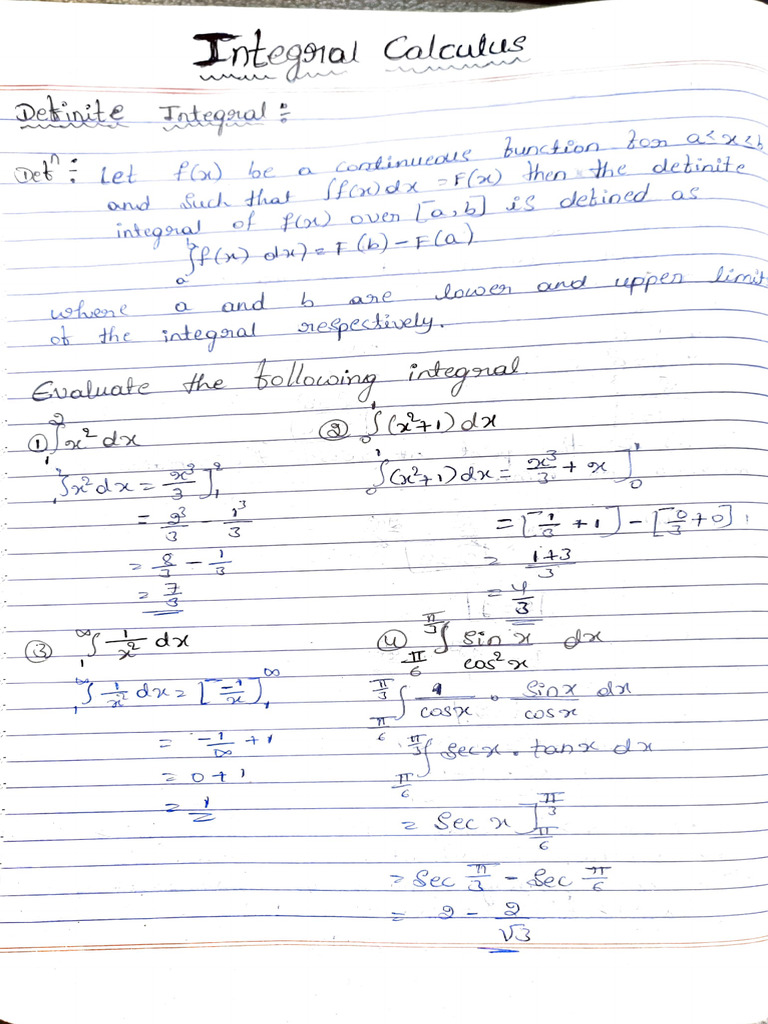 Integral Calculus
Definite Integral :
Defⁿ : Let f(x) be a continueous function for a≤x≤b
and such that ∫f(x)dx = F(x) then the definite
integral of f(x) over [a,b] is defined as
∫ₐᵇ f(x) dx) = F(b) - F(a)
where a and b are lower and upper limit
of the integral respectively.
Evaluate the following integral.
① ∫₁² x² dx
∫₁² x² dx = x³/3 ]₁²
= 2³/3 - 1³/3
= 8/3 - 1/3
= 7/3
② ∫₀¹ (x²+1) dx
∫₀¹ (x²+1) dx = x³/3 + x ]₀¹
= [1/3 + 1] - [0/3 + 0]
= 1+3/3
= 4/3
③ ∫₁^∞ 1/x² dx
∫₁^∞ 1/x² dx = [-1/x]₁^∞
= -1/∞ + 1
= 0 + 1
= 1
④ ∫_{π/6}^{π/3} sin x/cos²x dx
∫_{π/6}^{π/3} 1/cosx · sinx/cosx dx
∫_{π/6}^{π/3} secx · tanx dx
= Sec x ]_{π/6}^{π/3}
= Sec π/3 - Sec π/6
= 2 - 2/√3